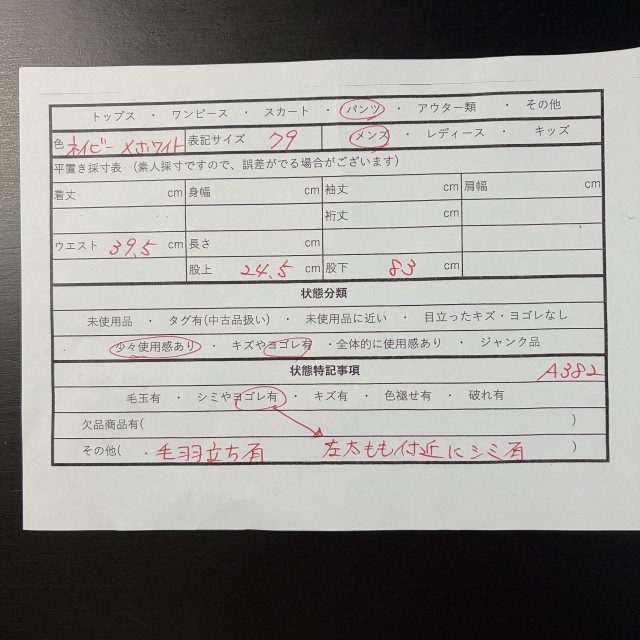 トップス ・ ワンピース ・ スカート ・ パンツ ・ アウター類 ・ その他
色 ネイビー×ホワイト 表記サイズ 79 メンズ ・ レディース ・ キッズ
平置き採寸表 (素人採寸ですので、誤差がでる場合がございます)
着丈 cm 身幅 cm 袖丈 cm 肩幅 cm
裄丈 cm
ウエスト 39.5 cm 長さ cm
股上 24.5 cm 股下 83 cm
状態分類
未使用品 ・ タグ有(中古品扱い) ・ 未使用品に近い ・ 目立ったキズ・ヨゴレなし
少々使用感あり ・ キズやヨゴレ有 ・全体的に使用感あり ・ ジャンク品
状態特記事項 A382
毛玉有 ・ シミやヨゴレ有 ・ キズ有 ・ 色褪せ有 ・ 破れ有
欠品商品有( )
その他( ・毛羽立ち有 左太もも付近にシミ有 )